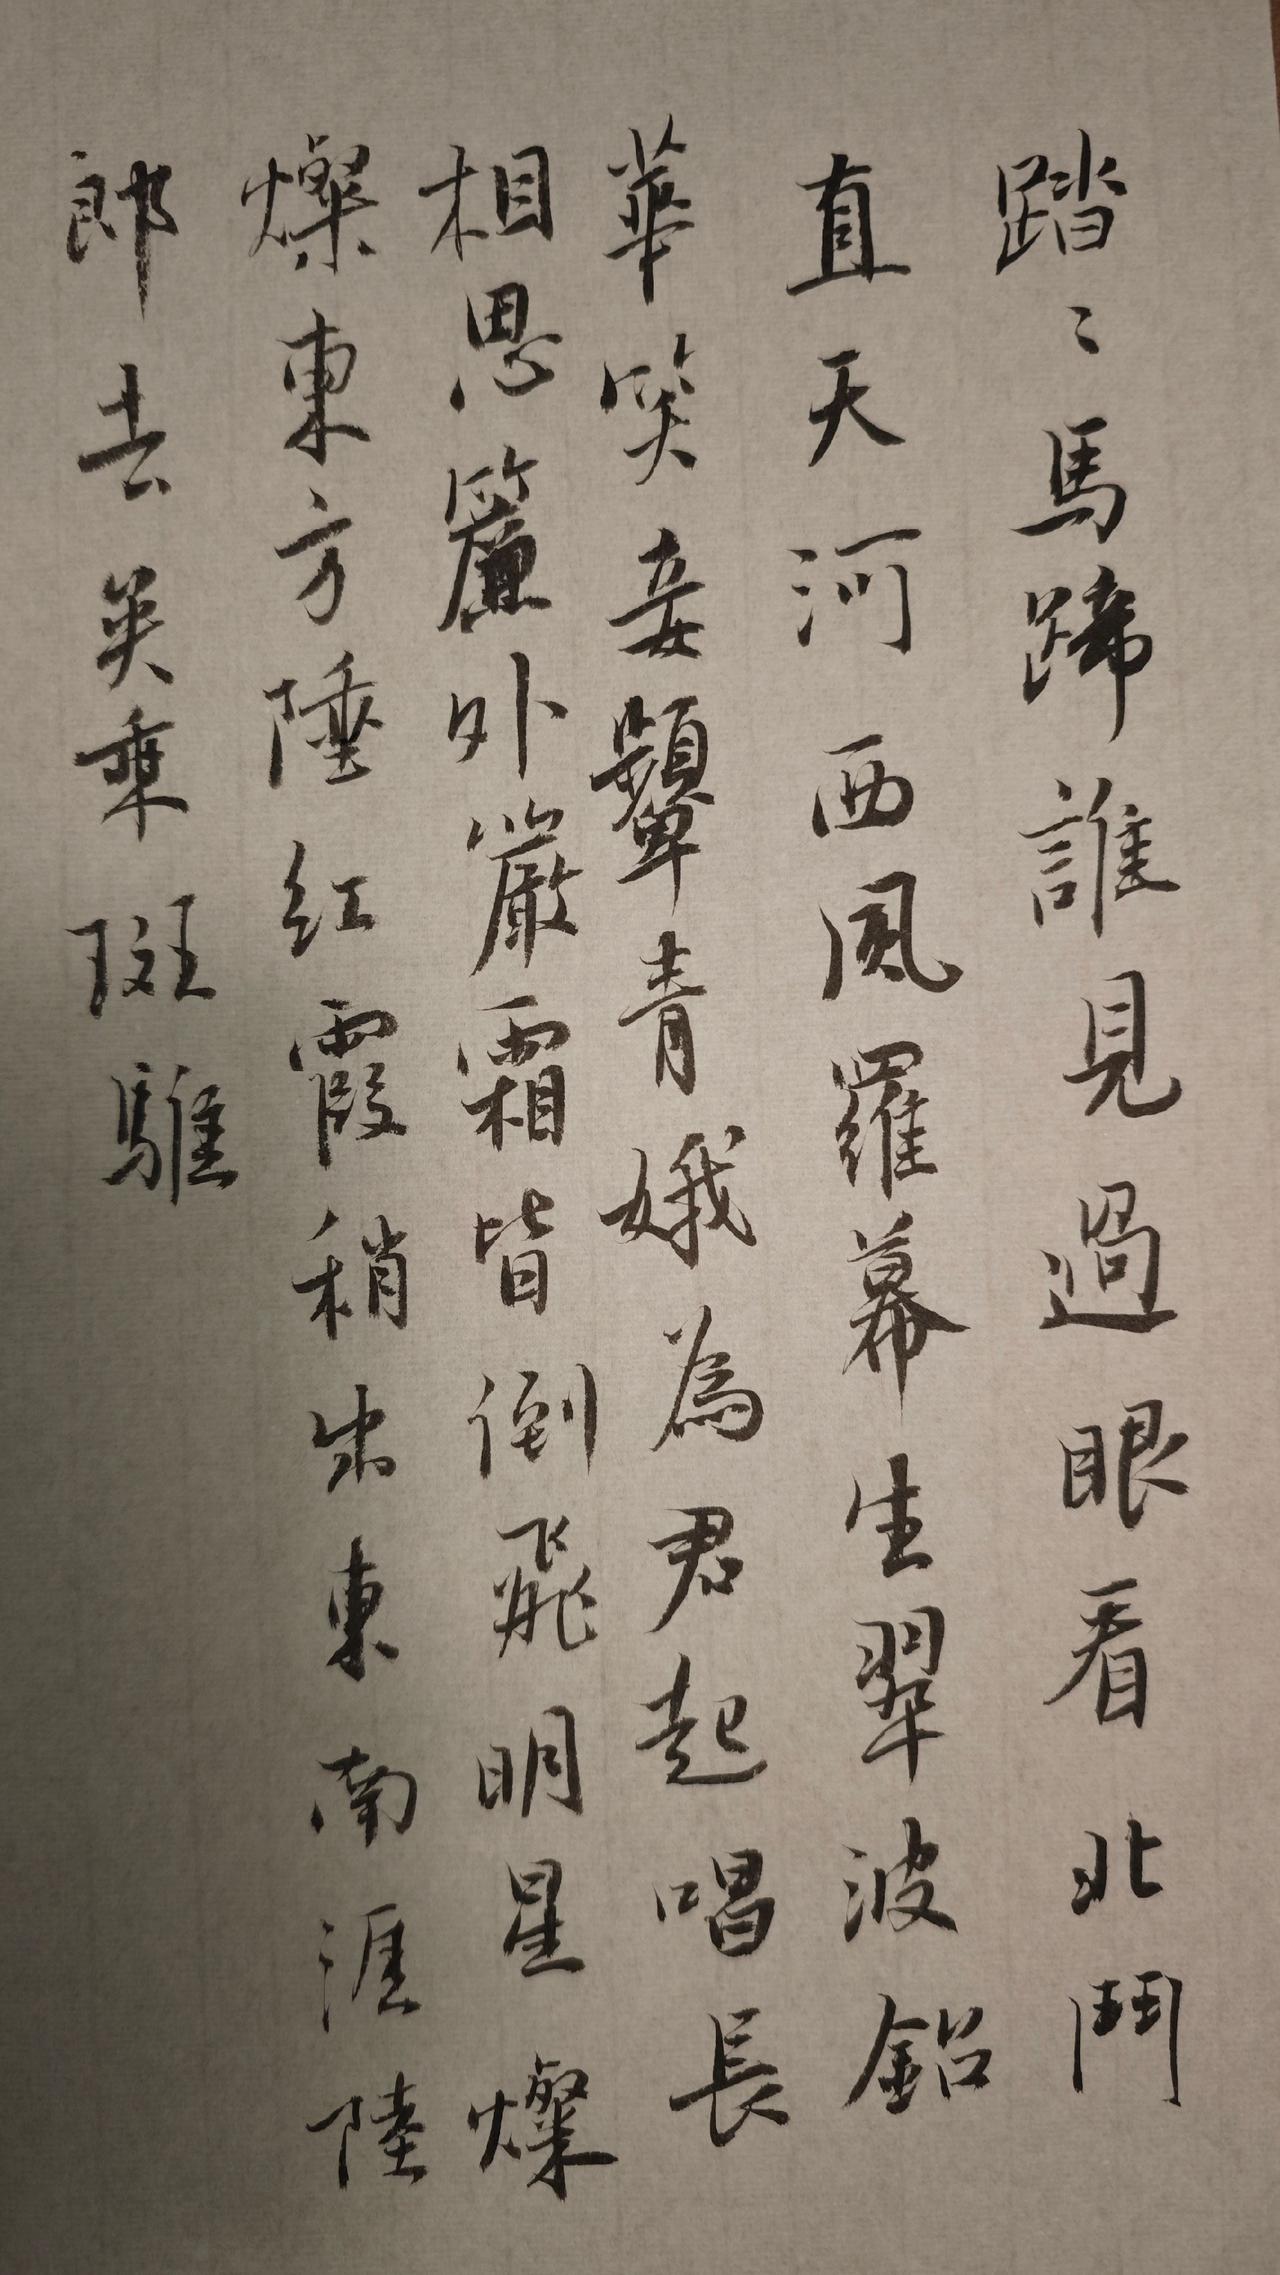 踏〻馬蹄誰見過眼看北鬥
直天河西風羅幕生翠波鉛
華笑妾顰青娥為君起唱長
相思簾外嚴霜皆倒飛明星燦
燦東方陲红霞稍出東南涯陸
郎去矣乘斑騅